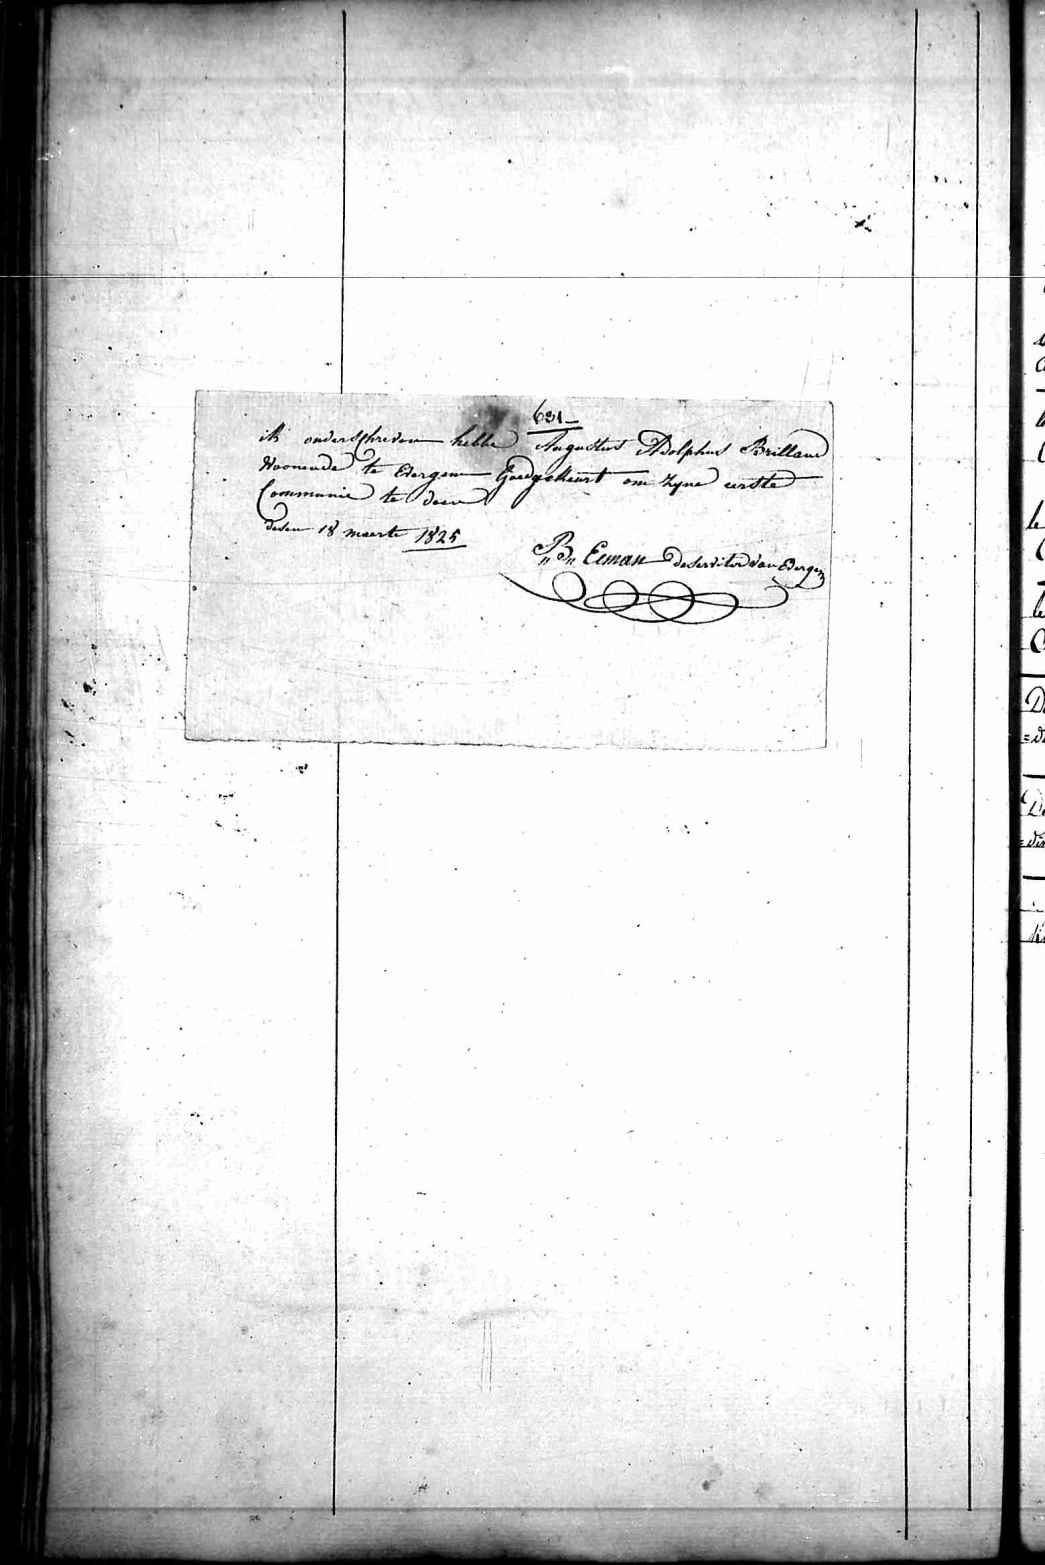 631
ik onderschreven hebbe Augustus Adolphus Brilland
Woonende te Evergem Goedgekeurt om zyne eerste
Communie te doen
desen 18 maerte 1825
B. Eeman deservitor van Everge